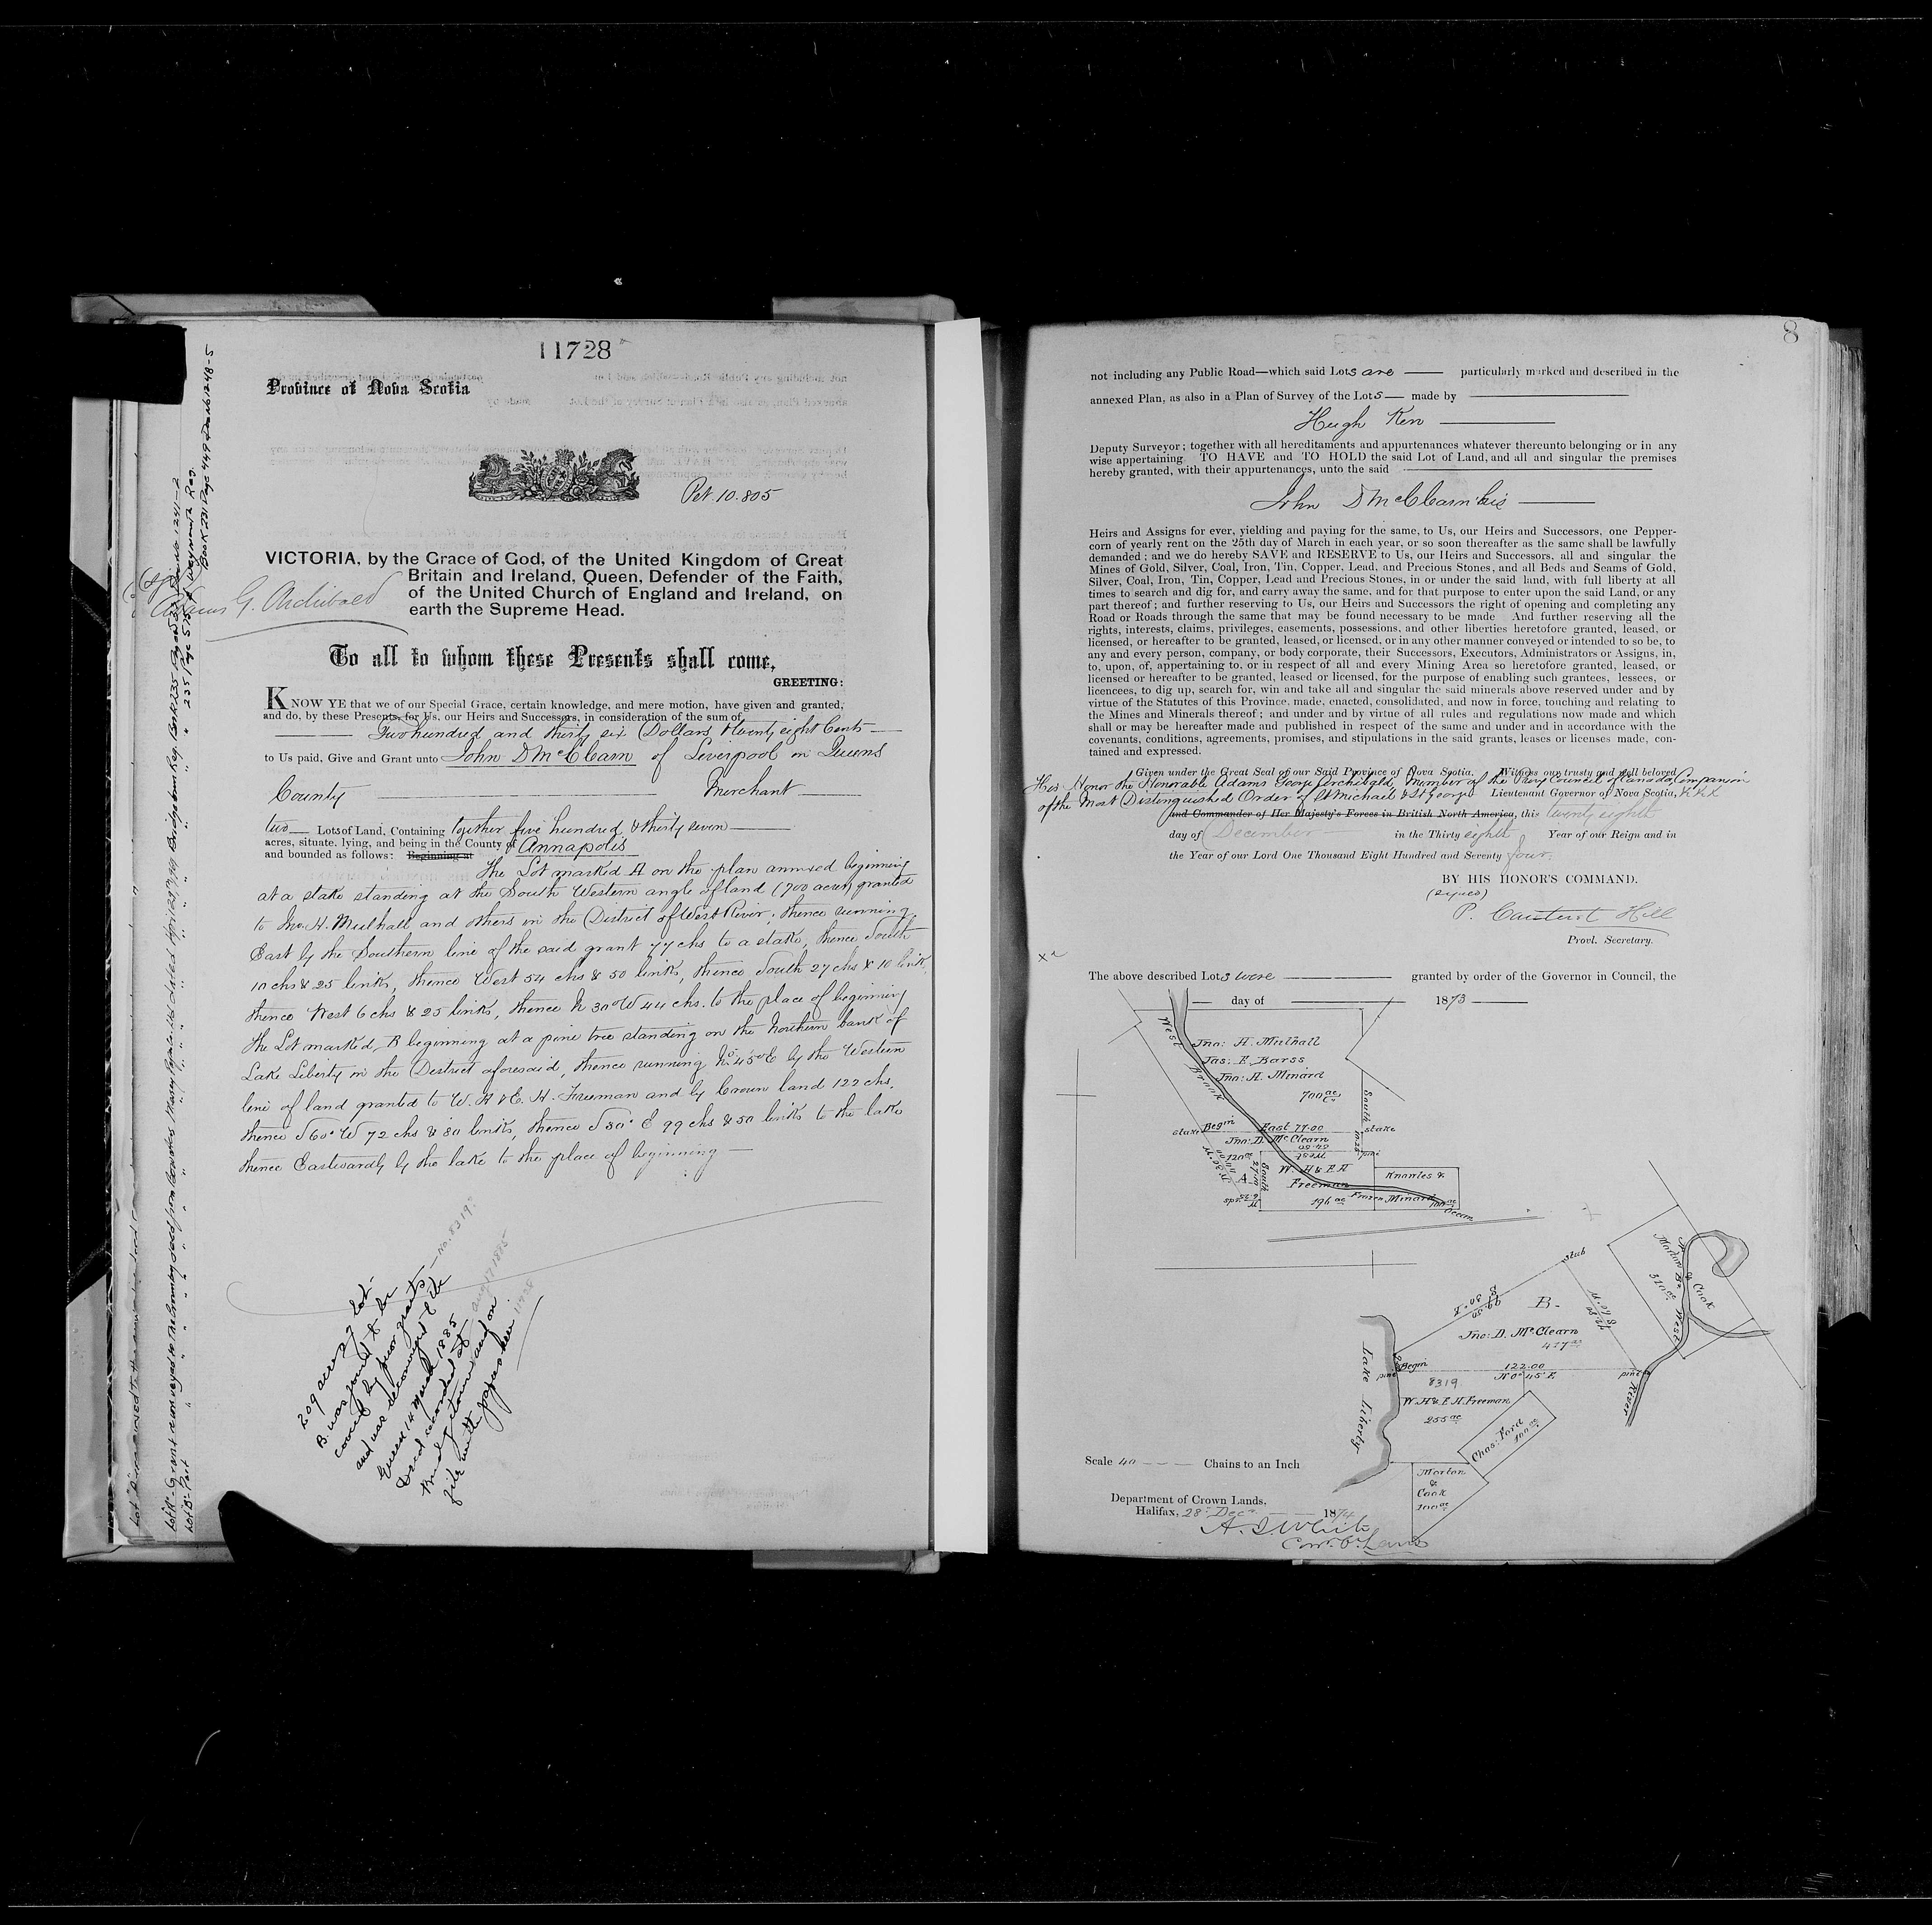 11728
Province of Nova Scotia
Pet. 10.805
VICTORIA, by the Grace of God, of the United Kingdom of Great
Britain and Ireland, Queen, Defender of the Faith,
of the United Church of England and Ireland, on
earth the Supreme Head.
Adams G. Archibald
To all to whom these Presents shall come,
GREETING:
KNOW YE that we of our Special Grace, certain knowledge, and mere motion, have given and granted,
and do, by these Presents, for Us, our Heirs and Successors, in consideration of the sum of
Two hundred and thirty six Dollars & twenty eight Cents
to Us paid, Give and Grant unto John D McClearn of Liverpool in Queens
County Merchant
two Lots of Land, Containing together five hundred & thirty seven
acres, situate, lying, and being in the County of Annapolis
and bounded as follows: Beginning at
The Lot marked A on the plan annexed beginning
at a stake standing at the South Western angle of land (700 acres) granted
to Jno. H. Mulhall and others in the District of West River, thence running
East by the Southern line of the said grant 77 chs to a stake, thence South
10 chs & 25 links, thence West 54 chs & 50 links, thence South 27 chs & 10 links,
thence West 6 chs & 25 links, thence N 30° W 44 chs. to the place of beginning
The Lot marked B beginning at a pine tree standing on the Northern bank of
Lake Liberty in the District aforesaid, thence running N 0° 45' E by the Western
line of land granted to W. H & E. H. Freeman and by Crown land 122 chs.
thence S 60° W 72 chs & 80 links, thence S 30° E 99 chs & 50 links to the lake
thence Eastwardly by the lake to the place of beginning
209 acres of Lot
B. was found to be
covered by prior grants - No. 8319
and was reconveyed to the
Queen 14 March 1885
Deed recorded at Aug 17 1885
Bridgetown and on
file with papers here 11728
8
not including any Public Road—which said Lots are particularly marked and described in the
annexed Plan, as also in a Plan of Survey of the Lots made by
Hugh Kerr
Deputy Surveyor; together with all hereditaments and appurtenances whatever thereunto belonging or in any
wise appertaining. TO HAVE and TO HOLD the said Lot of Land, and all and singular the premises
hereby granted, with their appurtenances, unto the said
John D McClearn his
Heirs and Assigns for ever, yielding and paying for the same, to Us, our Heirs and Successors, one Pepper-
corn of yearly rent on the 25th day of March in each year, or so soon thereafter as the same shall be lawfully
demanded; and we do hereby SAVE and RESERVE to Us, our Heirs and Successors, all and singular the
Mines of Gold, Silver, Coal, Iron, Tin, Copper, Lead, and Precious Stones, and all Beds and Seams of Gold,
Silver, Coal, Iron, Tin, Copper, Lead and Precious Stones, in or under the said land, with full liberty at all
times to search and dig for, and carry away the same, and for that purpose to enter upon the said Land, or any
part thereof; and further reserving to Us, our Heirs and Successors the right of opening and completing any
Road or Roads through the same that may be found necessary to be made And further reserving all the
rights, interests, claims, privileges, easements, possessions, and other liberties heretofore granted, leased, or
licensed, or hereafter to be granted, leased, or licensed, or in any other manner conveyed or intended to so be, to
any and every person, company, or body corporate, their Successors, Executors, Administrators or Assigns, in,
to, upon, of, appertaining to, or in respect of all and every Mining Area so heretofore granted, leased, or
licensed or hereafter to be granted, leased or licensed, for the purpose of enabling such grantees, lessees, or
licencees, to dig up, search for, win and take all and singular the said minerals above reserved under and by
virtue of the Statutes of this Province, made, enacted, consolidated, and now in force, touching and relating to
the Mines and Minerals thereof; and under and by virtue of all rules and regulations now made and which
shall or may be hereafter made and published in respect of the same and under and in accordance with the
covenants, conditions, agreements, promises, and stipulations in the said grants, leases or licenses made, con-
tained and expressed.
Given under the Great Seal of our Said Province of Nova Scotia. Witness our trusty and well beloved
His Honor the Honorable Adams George Archibald, Member of the Privy Council of Canada, Companion
of the Most Distinguished Order of St Michael & St George Lieutenant Governor of Nova Scotia, &c &c &c
and Commander of Her Majesty's Forces in British North America, this twenty eighth
day of December in the Thirty eighth Year of our Reign and in
the Year of our Lord One Thousand Eight Hundred and Seventy four.
BY HIS HONOR'S COMMAND.
(signed)
P. Carteret Hill
Provl. Secretary.
The above described Lots were granted by order of the Governor in Council, the
day of 1873
West Branch
Jno: H. Mulhall
Jas: E. Barss
Jno: H. Minard
700 ac
South 10.25
Begin
stake
East 77.00
stake
Jno: D. McClearn
54.50
West
120 ac
A
South 27.10
W. H & E. H
Freeman
196 ac
Knowles &
Minard
100 ac
pine
stub
B.
Jno: D. McClearn
417 ac
Begin
pine
122.00
N 0° 45' E
pine
8319
W. H & E. H. Freeman
255 ac
Lake Liberty
Chas: Ford
100 ac
Morton
&
Cook
100 ac
Morton & Cook
310 ac
West
River
Scale 40 Chains to an Inch
Department of Crown Lands,
Halifax, 28th Decr 1874